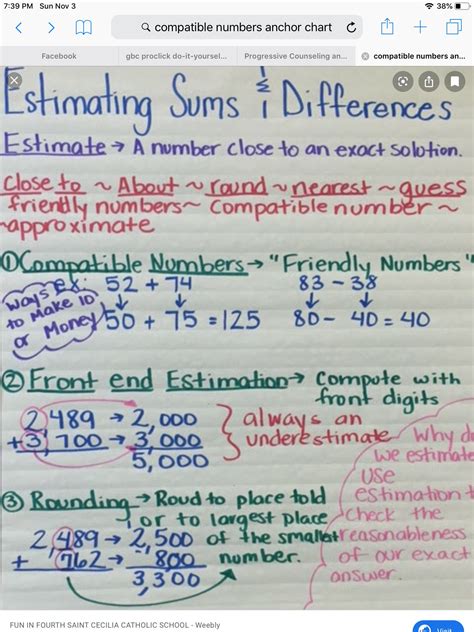 7:39 PM Sun Nov 3
38%
compatible numbers anchor chart
Facebook
gbc proclick do-it-yoursel...
Progressive Counseling an...
compatible numbers an...
Estimating Sums & Differences
Estimate → A number close to an exact solution.
Close to ~ About ~ round ~ nearest ~ guess
friendly numbers ~ Compatible number ~
approximate
① Compatible Numbers → "Friendly Numbers"
Ex: 52 + 74 83 - 38
ways to Make 10 or Money
50 + 75 = 125 80 - 40 = 40
② Front end Estimation → Compute with
front digits
2,489 → 2,000 always an
+ 3,700 → 3,000 underestimate
5,000
Why do
we estimate
Use
estimation t
Check the
reasonableness
of our exact
answer.
③ Rounding → Roud to place told
or to largest place
2,489 → 2,500 of the smallest
+ 762 → 800 number.
3,300
FUN IN FOURTH SAINT CECILIA CATHOLIC SCHOOL - Weebly
Visit